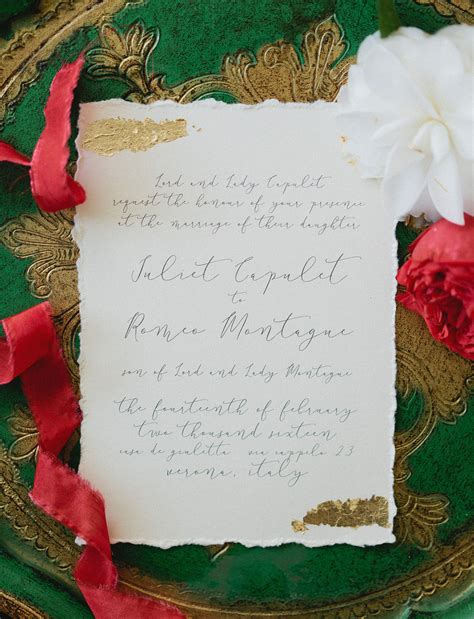 Lord and Lady Capulet
request the honour of your presence
at the marriage of their daughter
Juliet Capulet
to
Romeo Montague
son of Lord and Lady Montague
the fourteenth of february
two thousand sixteen
casa de giuletta via cappelo 23
verona, italy